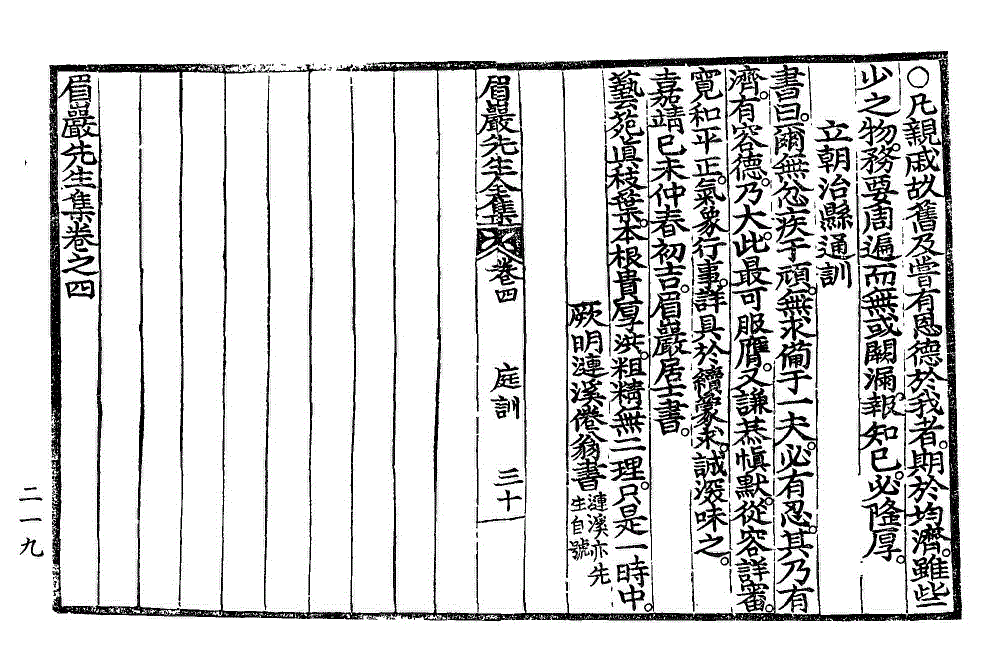 ○凡親戚故舊及嘗有恩德於我者。期於均濟。雖些
少之物。務要周遍而無或闕漏。報知己。必隆厚。
立朝治縣通訓
書曰。爾無忿疾于頑。無求備于一夫。必有忍。其乃有
濟。有容德。乃大。此最可服膺。又謙恭愼默。從容詳審。
寬和平正。氣象行事。詳具於續蒙求。誠深味之。
嘉靖己未仲春初吉。眉巖居士書。
藝苑眞枝葉。本根貴厚洪。粗精無二理。只是一時中。
厥明漣溪倦翁書 漣溪亦先
生自號
眉巖先生全集 卷四 庭訓 三十
眉巖先生集卷之四
二一九